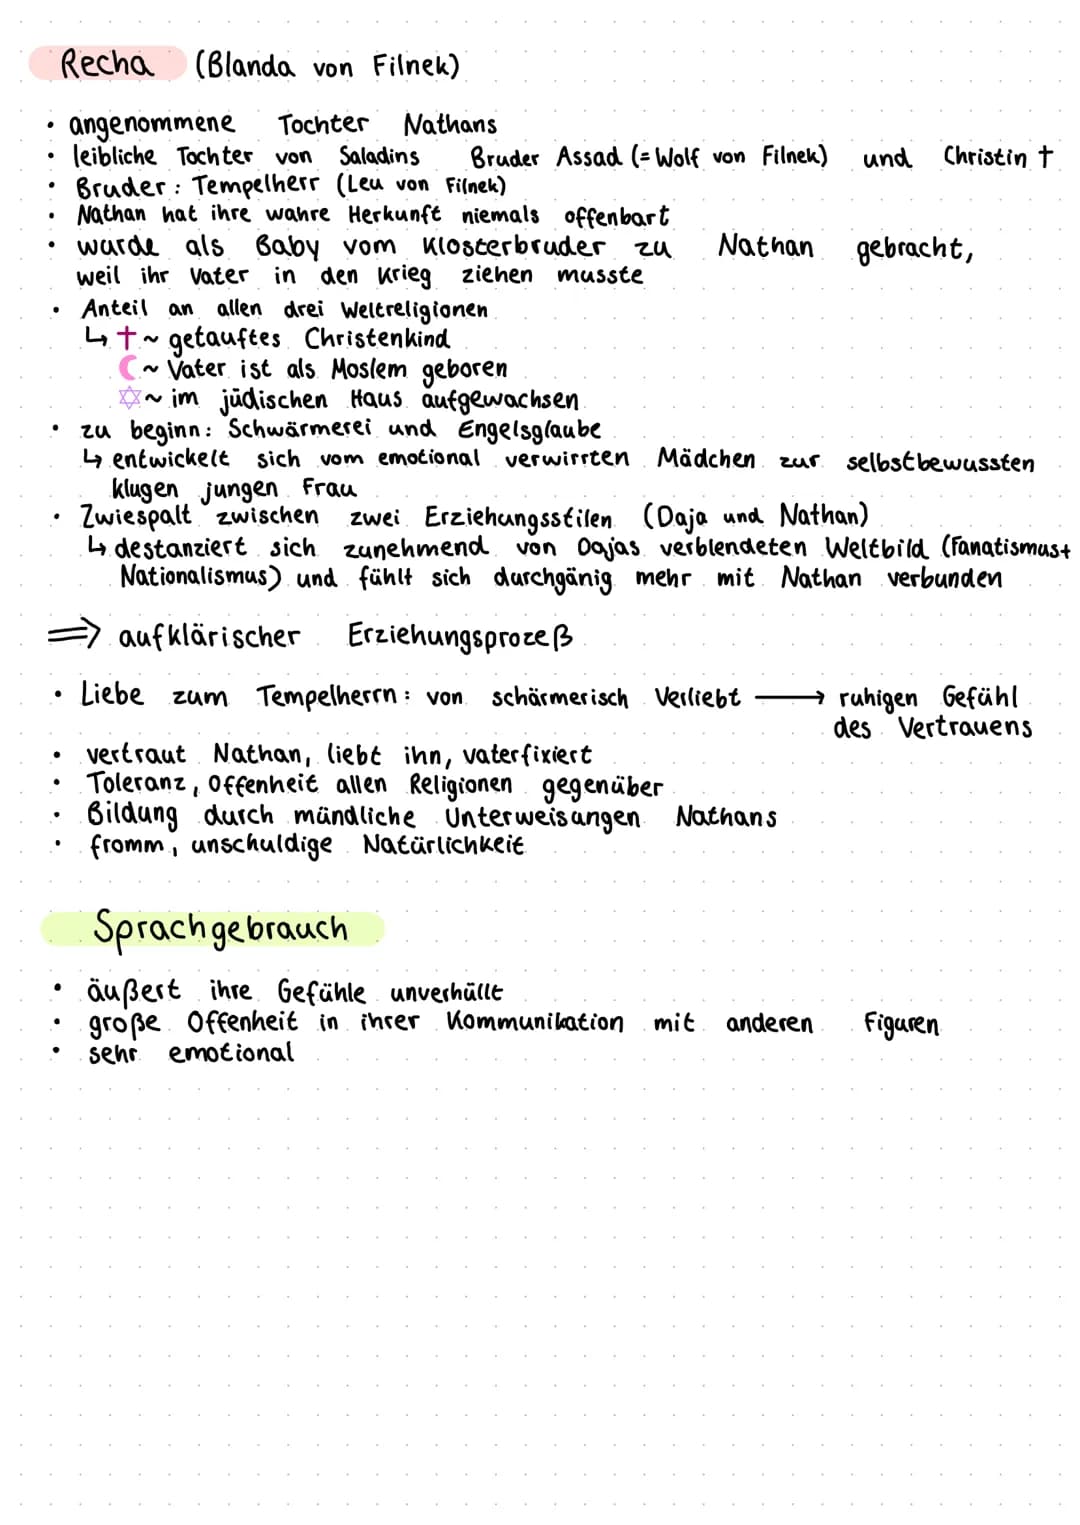 Recha (Blanda von Filnek)
• angenommene Tochter Nathans
• leibliche Tochter von Saladins Bruder Assad (= Wolf von Filnek) und Christin †
• Bruder: Tempelherr (Leu von Filnek)
• Nathan hat ihre wahre Herkunft niemals offenbart
• wurde als Baby vom Klosterbruder zu Nathan gebracht,
weil ihr Vater in den Krieg ziehen musste
• Anteil an allen drei Weltreligionen
↳ ✝ ~ getauftes Christenkind
☾ ~ Vater ist als Moslem geboren
✡ ~ im jüdischen Haus aufgewachsen
• zu beginn: Schwärmerei und Engelsglaube
↳ entwickelt sich vom emotional verwirrten Mädchen zur selbstbewussten
klugen jungen Frau
• Zwiespalt zwischen zwei Erziehungsstilen (Daja und Nathan)
↳ destanziert sich zunehmend von Dajas verblendeten Weltbild (Fanatismus+
Nationalismus) und fühlt sich durchgänig mehr mit Nathan verbunden
⟹ aufklärischer Erziehungsprozeß
• Liebe zum Tempelherrn: von schärmerisch Verliebt ⟶ ruhigen Gefühl
des Vertrauens
• vertraut Nathan, liebt ihn, vaterfixiert
• Toleranz, Offenheit allen Religionen gegenüber
• Bildung durch mündliche Unterweisungen Nathans
• fromm, unschuldige Natürlichkeit
Sprachgebrauch
• äußert ihre Gefühle unverhüllt
• große Offenheit in ihrer Kommunikation mit anderen Figuren
• sehr emotional